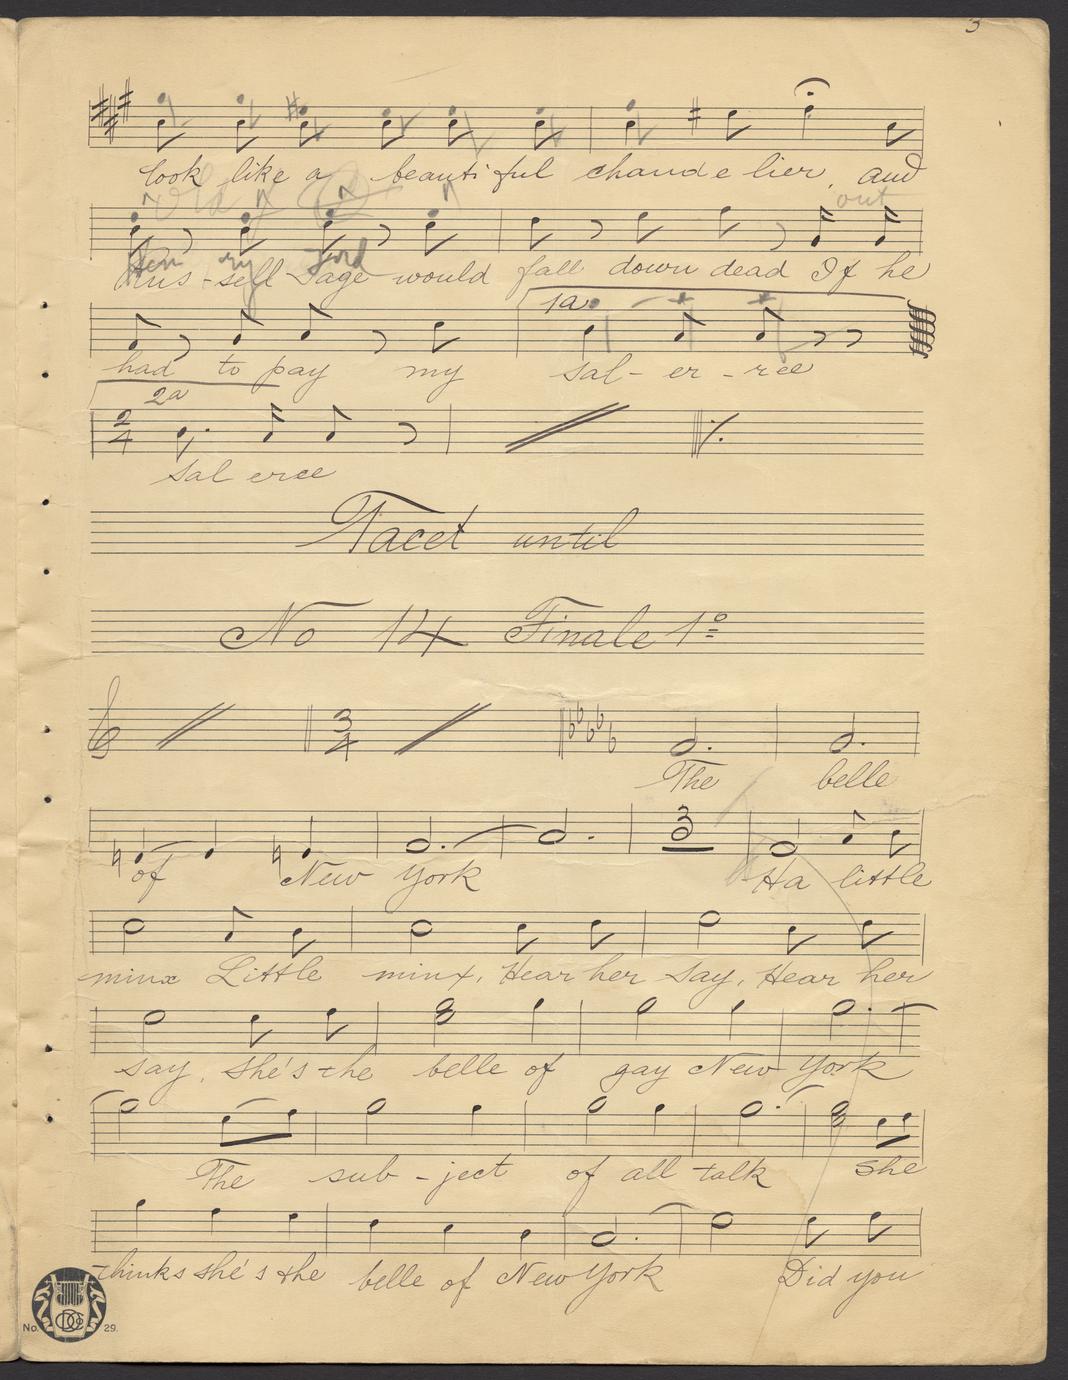 3
look like a beautiful chande lier, and
out
Rus-sell Sage would fall down dead If he
1a
had to pay my sal-er-ree
2a
2 4
sal eree
Tacet until
No 14 Finale 1º
3 4
The belle
of New York
3
Ha little
minx Little minx, Hear her say, Hear her
say, she's the belle of gay New York
The sub-ject of all talk She
thinks she's the belle of New York Did you
No. 29.